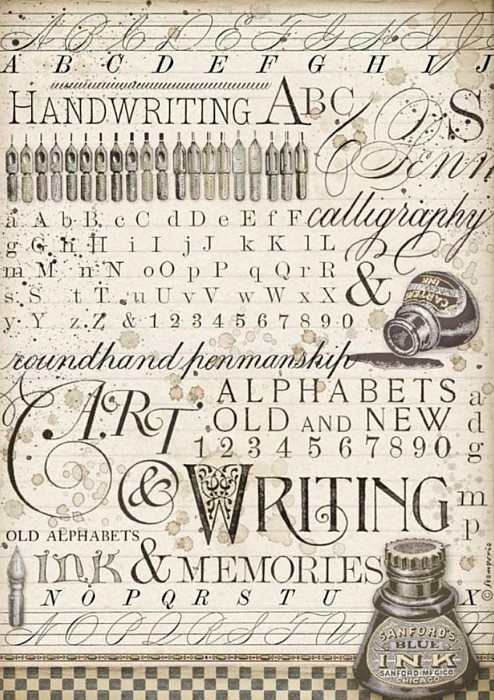 A B C D E F G H I J
A B C D E F G H I J
HANDWRITING ABC
S
Penn
a A b B c C d D e E f F calligraphy
g G h H i I j J k K l L
m M n N o O p P q Q r R
s S t T u U v V w W x X &
CARTER'S
INK
y Y z Z & 1 2 3 4 5 6 7 8 9 0
roundhand penmanship
ART
ALPHABETS a
OLD AND NEW d
1 2 3 4 5 6 7 8 9 0 g
& WRITING m
p
OLD ALPHABETS
INK & MEMORIES
©Stamperia
N O P Q R S T U X
N O P Q R S T U
SANFORD'S
BLUE
INK
SANFORD MFG CO
CHICAGO